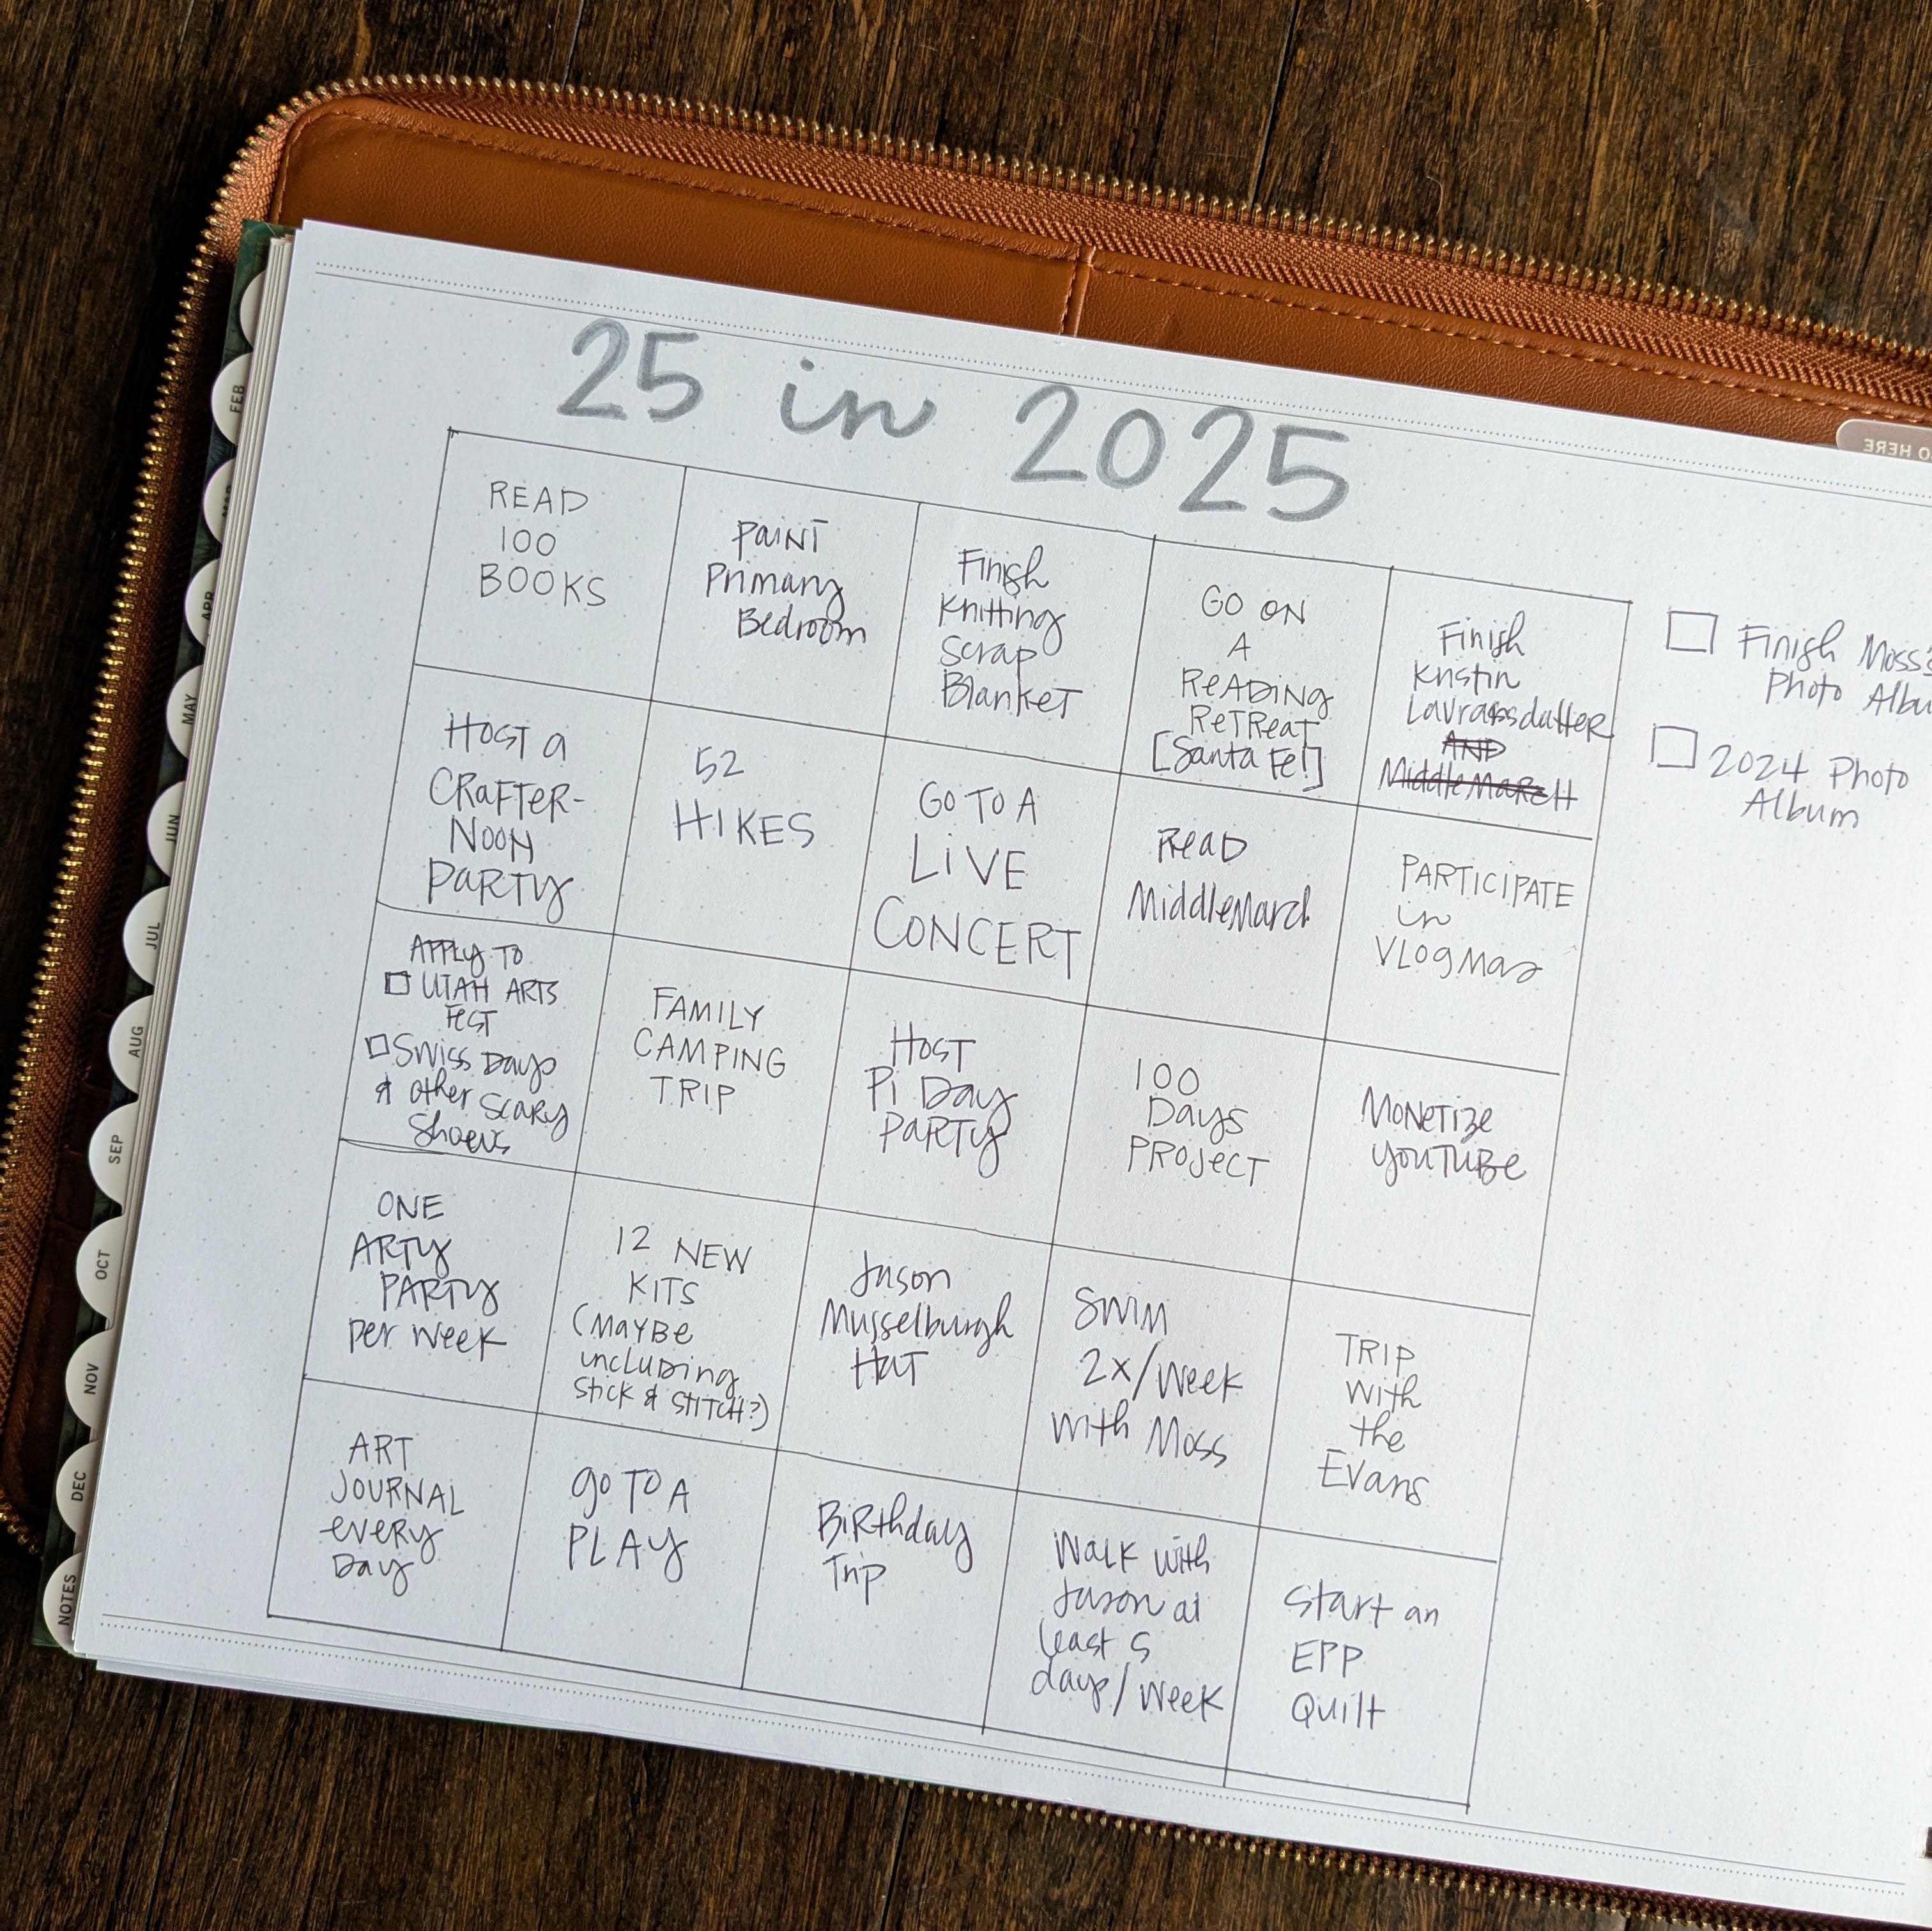 25 in 2025
READ
100
BOOKS
PAINT
Primary
Bedroom
Finish
Knitting
Scrap
Blanket
GO ON
A
READING
RETREAT
[Santa Fe!]
Finish
Kristin
Lavransdatter
AND
MIDDLEMARCH
HOST a
CRAFTER-
NOON
PARTY
52
HIKES
GO TO A
LIVE
CONCERT
Read
Middlemarch
PARTICIPATE
in
VLOGMAS
APPLY TO
UTAH ARTS
FEST
Swiss Days
& other scary
shows
FAMILY
CAMPING
TRIP
HOST
Pi Day
PARTY
100
Days
PROJECT
MONETIZE
YOUTUBE
ONE
ARTY
PARTY
per week
12 NEW
KITS
(MAYBE
including
stick & STITCH?)
Jason
Musselburgh
HAT
SWIM
2x/week
with Moss
TRIP
with
the
Evans
ART
JOURNAL
every
Day
go TO A
PLAY
Birthday
Trip
Walk with
Jason at
least 5
days/week
Start an
EPP
Quilt
Finish Moss's
Photo Albu
2024 Photo
Album
O HERE
FEB
MAR
APR
MAY
JUN
JUL
AUG
SEP
OCT
NOV
DEC
NOTES